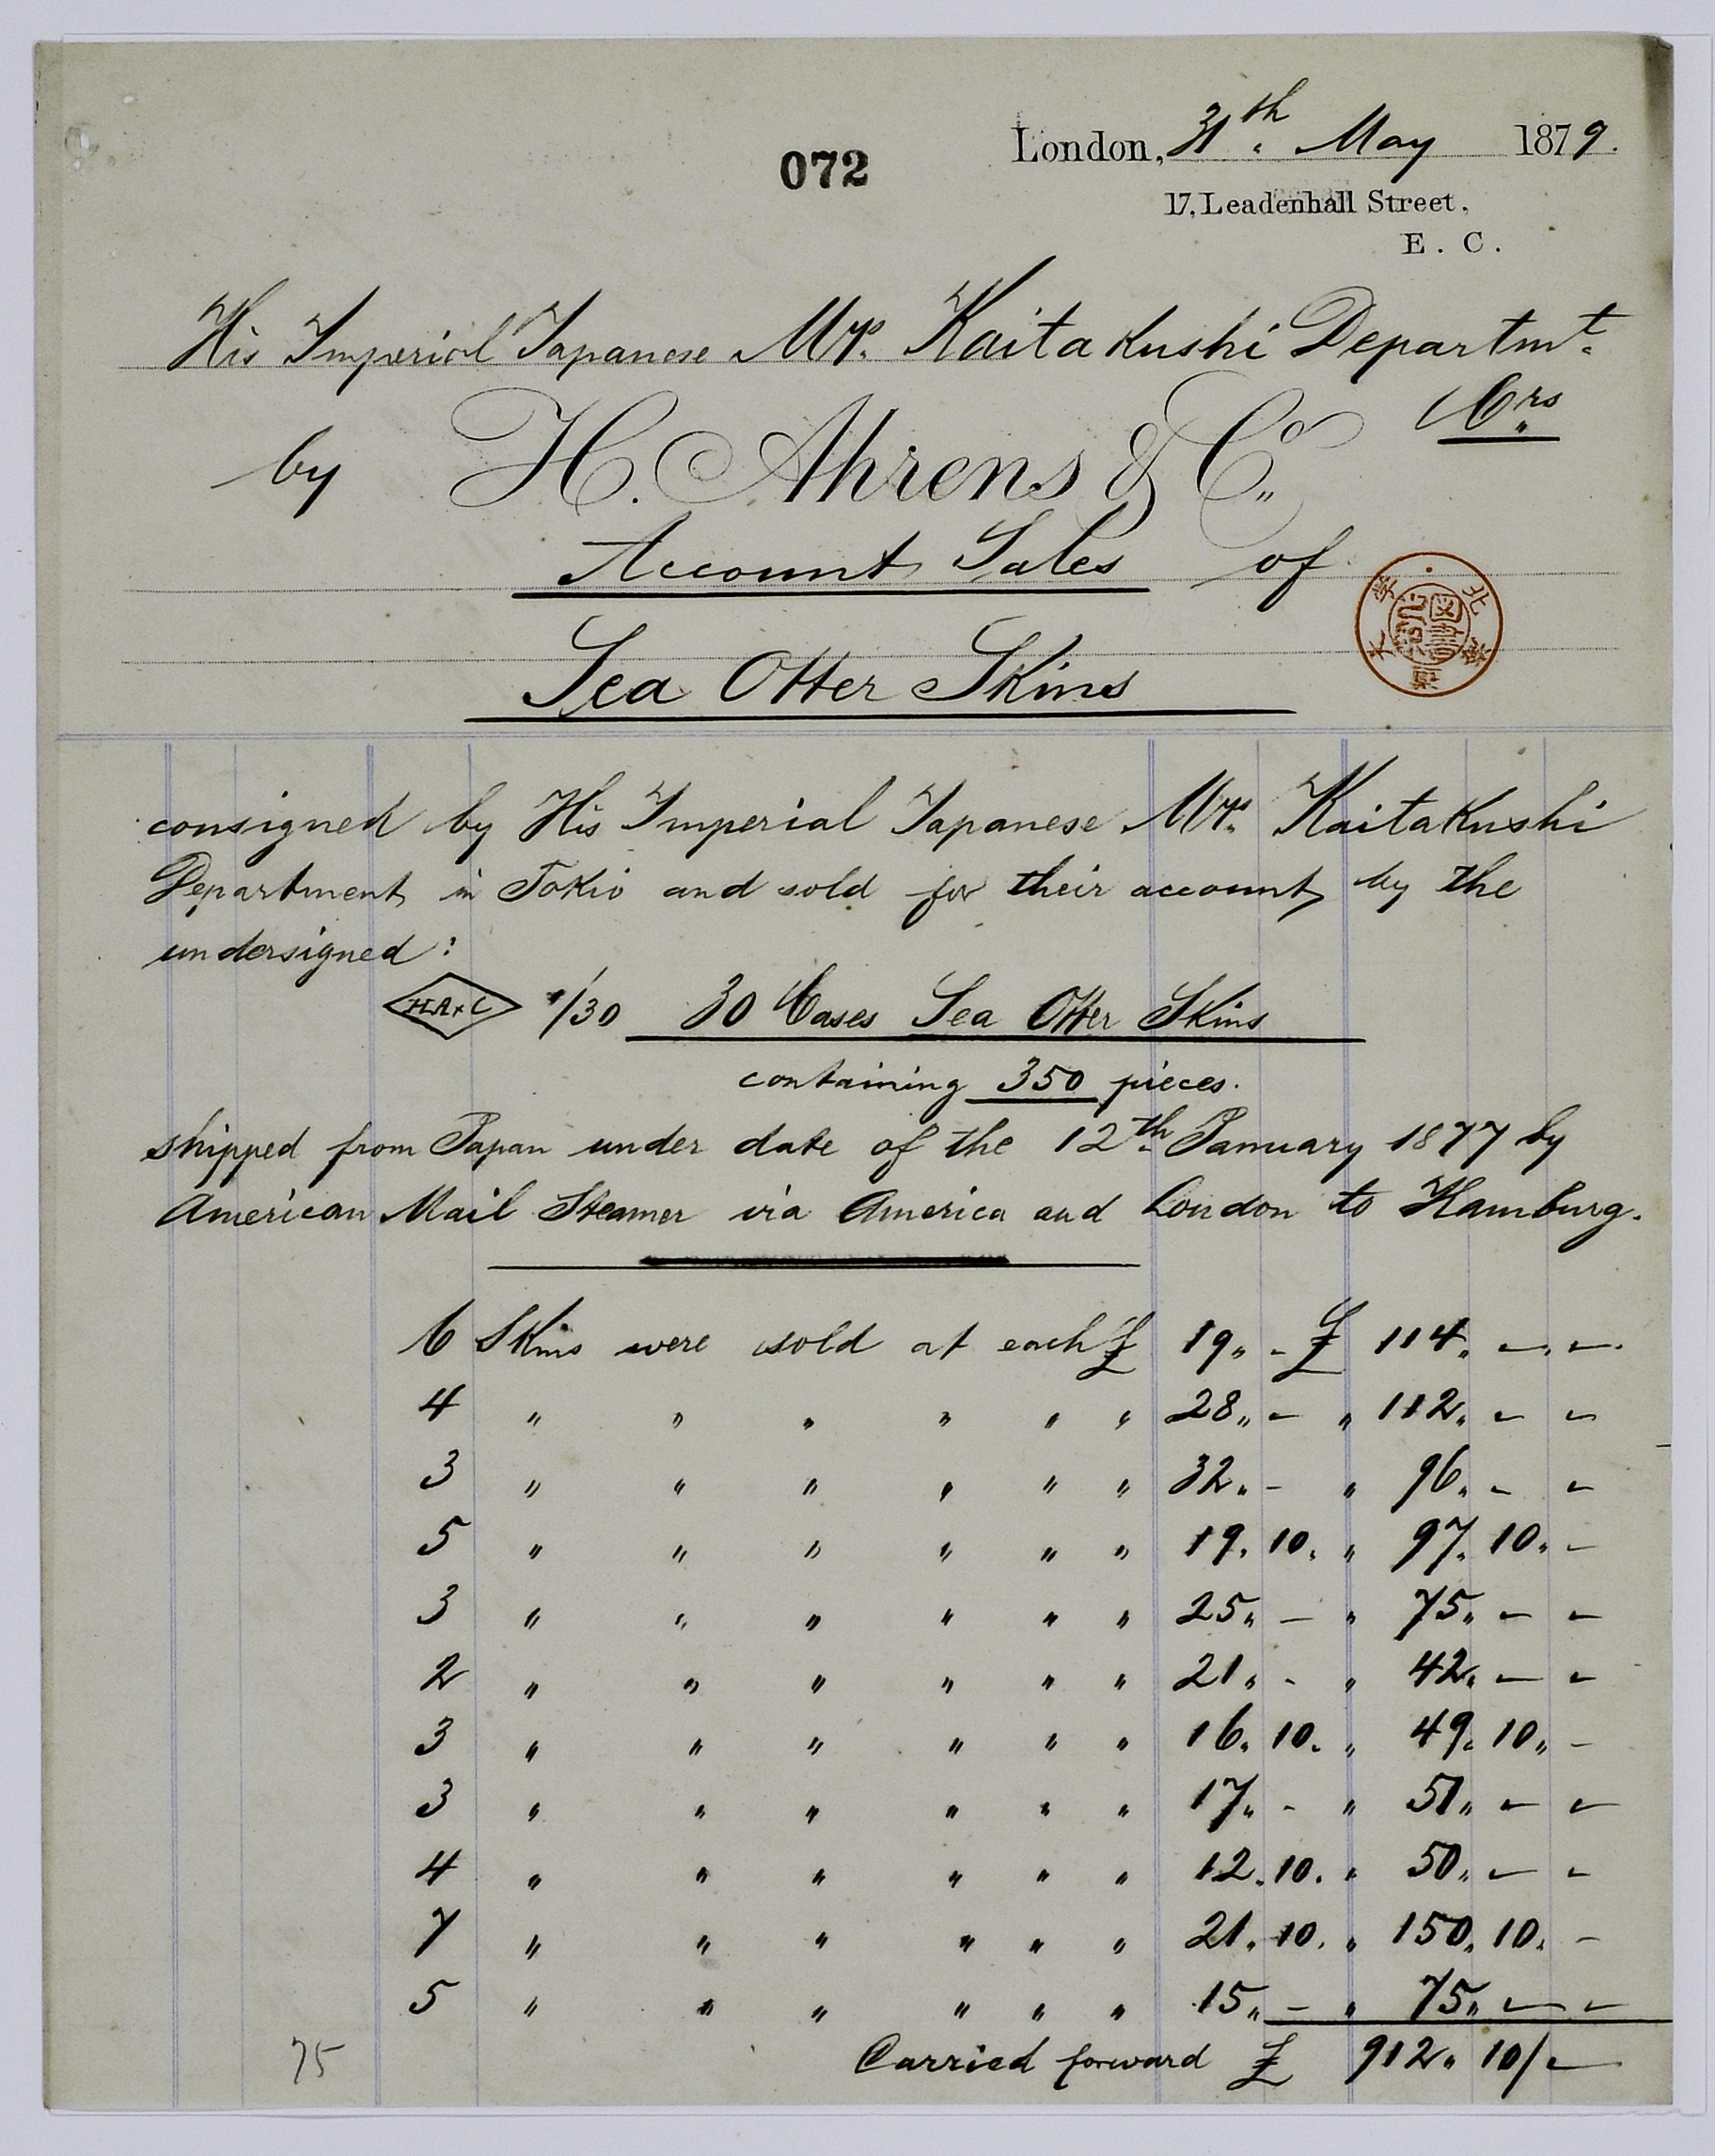 072
London, 31th May 1879.
17, Leadenhall Street,
E. C.
His Imperial Japanese Mys. Kaitakushi Departmt.
Crs
by H. Ahrens & Co.
Account Sales of
Sea Otter Skins
consigned by His Imperial Japanese Mys. Kaitakushi
Department in Tokio and sold for their account by the
undersigned:
HA&C 1/30 30 Cases Sea Otter Skins
containing 350 pieces.
shipped from Japan under date of the 12th January 1877 by
American Mail Steamer via America and London to Hamburg.
6 Skins were sold at each £ 19 " - £ 114 " - " -
4 " " " " " " 28 " - " 112 " - -
3 " " " " " " 32 " - " 96 " - -
5 " " " " " " 19 . 10 . " 97 . 10 " -
3 " " " " " " 25 " - " 75 " - -
2 " " " " " " 21 " - " 42 " - -
3 " " " " " " 16 . 10 . " 49 . 10 " -
3 " " " " " " 17 " - " 51 " - -
4 " " " " " " 12 . 10 . " 50 " - -
7 " " " " " " 21 . 10 . " 150 . 10 . -
5 " " " " " " 15 " - " 75 " - -
75 Carried forward £ 912 " 10/-